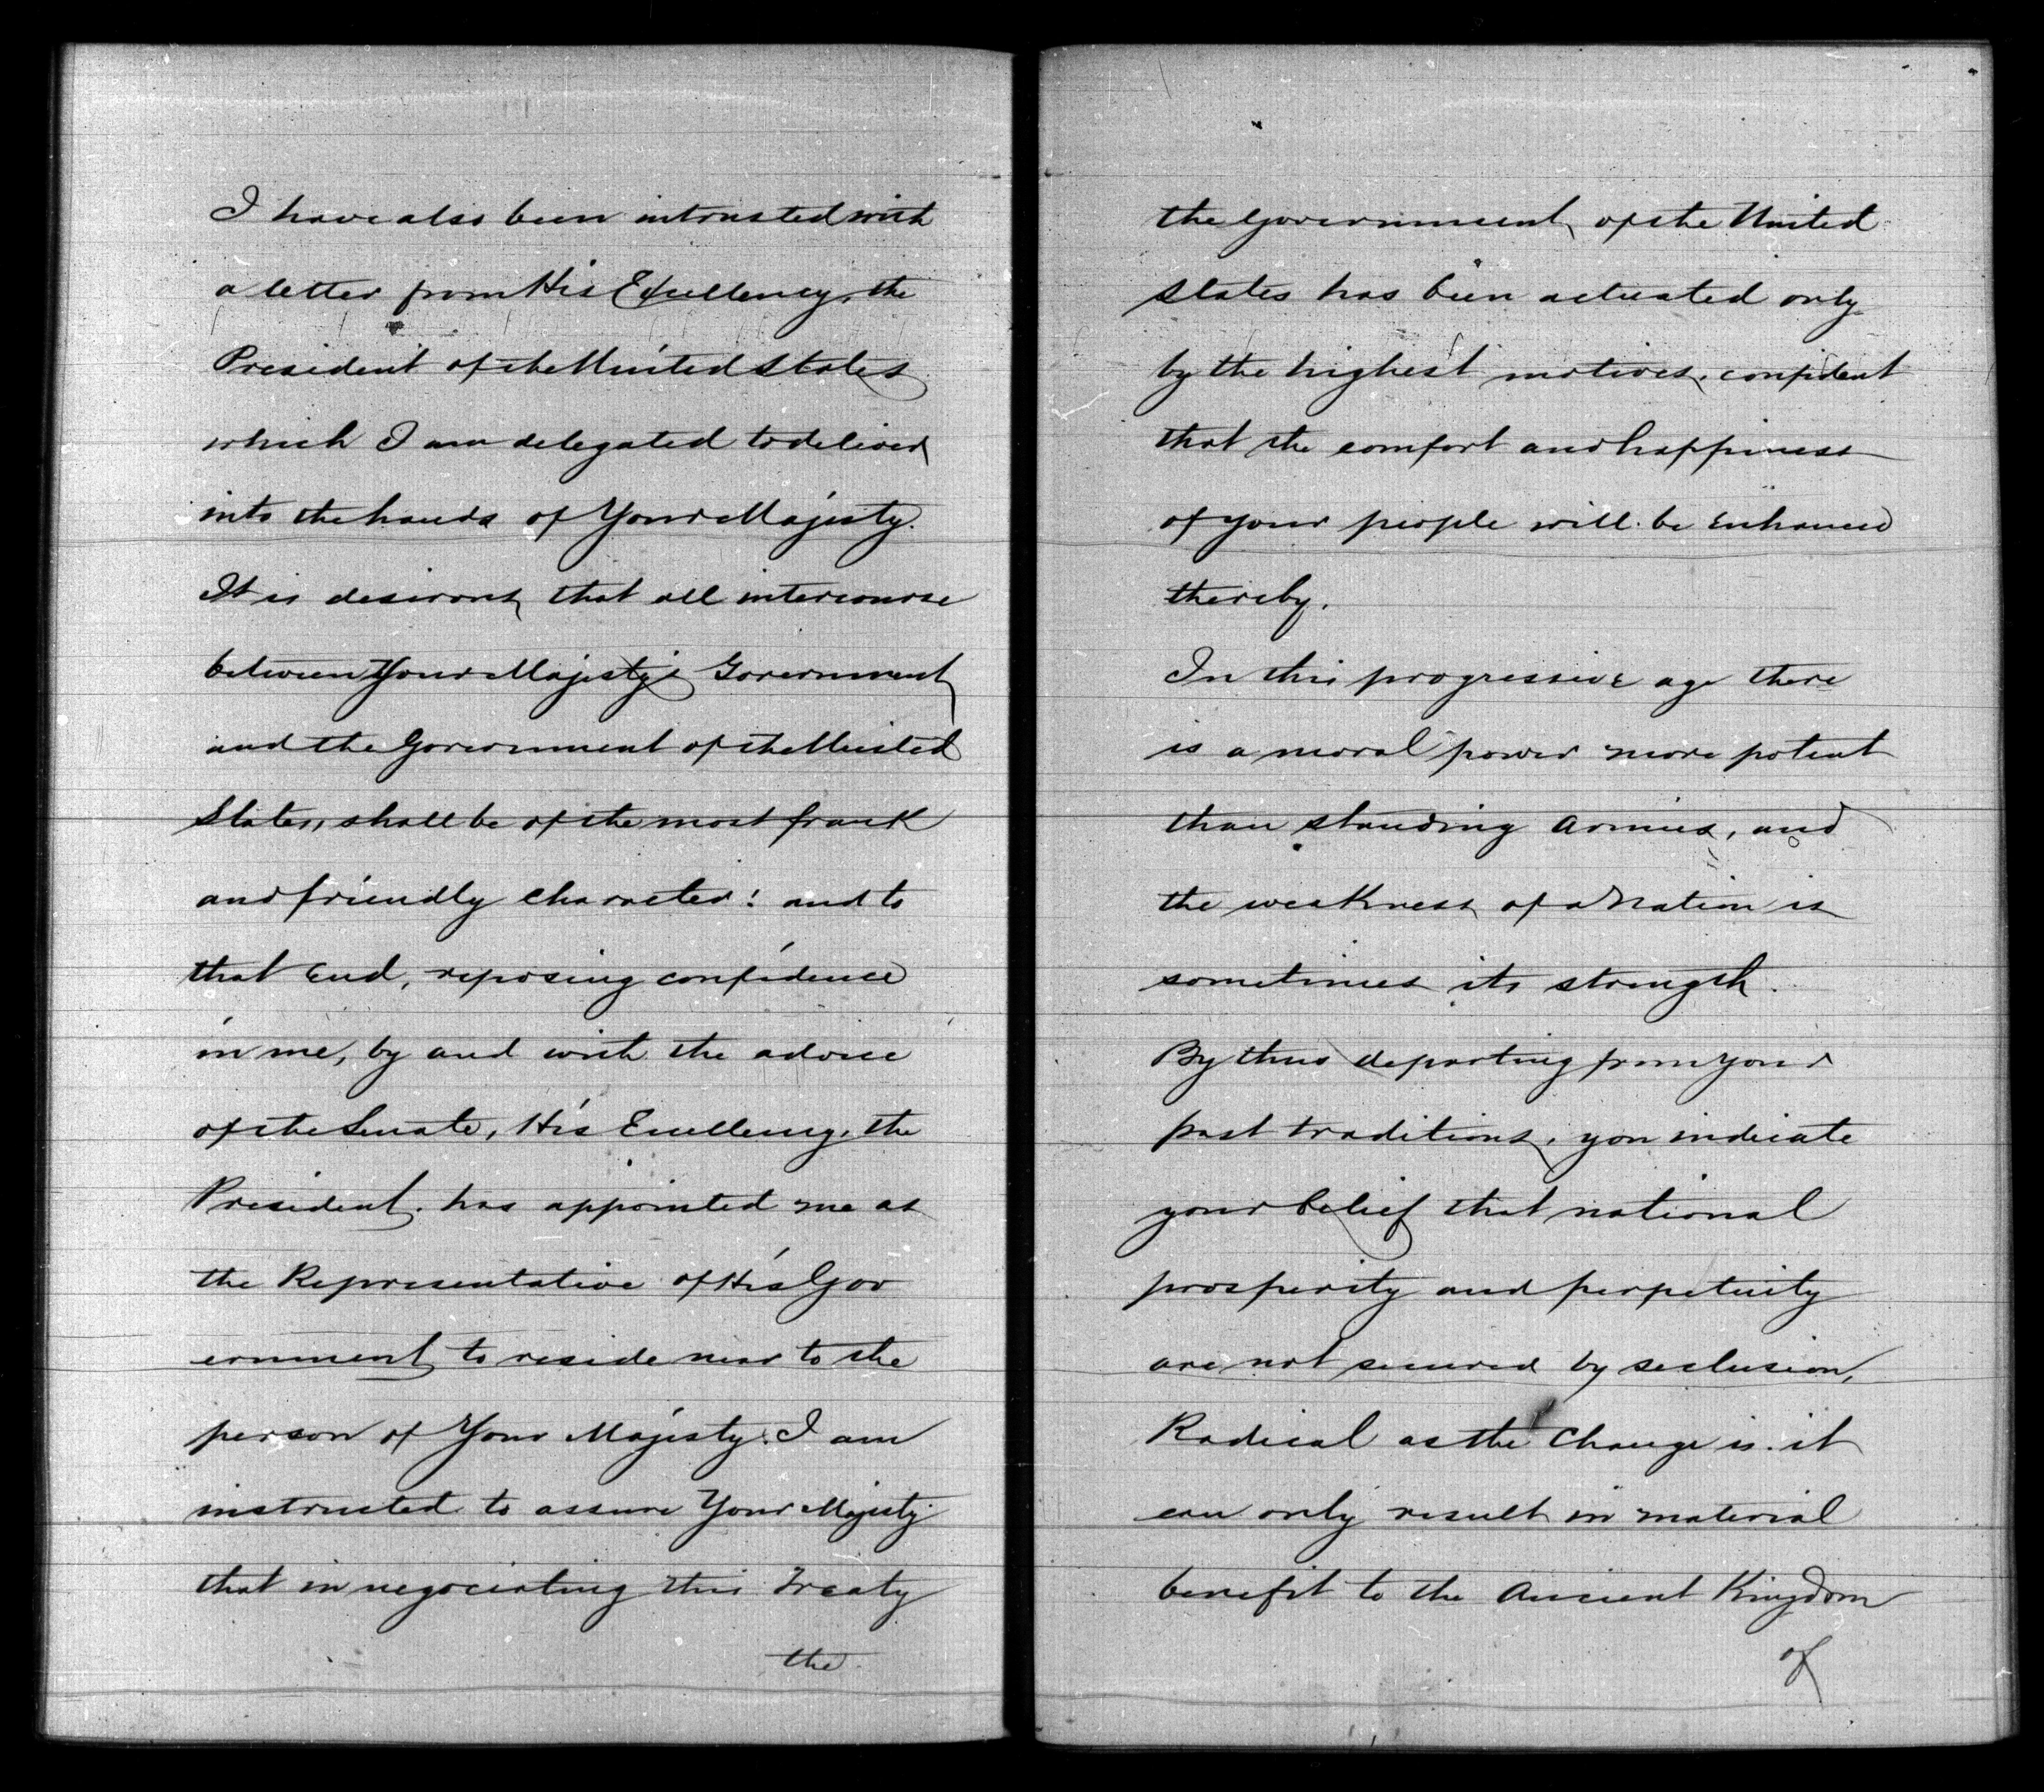 I have also been intrusted with
a letter from His Excellency, the
President of the United States
which I am delegated to deliver
into the hands of Your Majesty.
It is desirous, that all intercourse
between Your Majesty's Government
and the Government of the United
States, shall be of the most frank
and friendly character: and to
that end, reposing confidence
in me, by and with the advice
of the Senate, His Excellency, the
President, has appointed me as
the Representative of His Gov
ernment to reside near to the
person of Your Majesty. I am
instructed to assure Your Majesty
that in negociating this Treaty
the
the Government, of the United
States has been actuated only
by the highest motives, confident
that the comfort and happiness
of your people will be enhanced
thereby.
In this progressive age there
is a moral power more potent
than standing armies, and
the weakness of a Nation is
sometimes its strength.
By thus departing from your
past traditions, you indicate
your belief that national
prosperity and perpetuity
are not secured by seclusion,
Radical as the Change is, it
can only result in material
benefit to the Ancient Kingdom
of